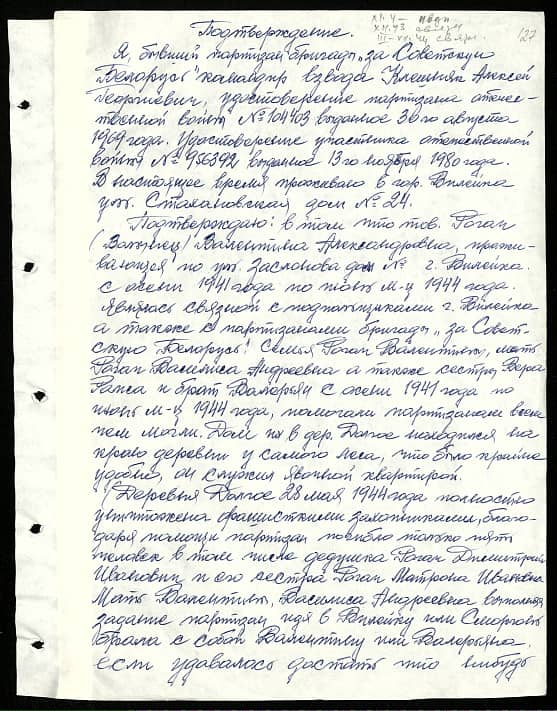 XI.4- подп
XII.43 связн
III-VII.44 связн.
127
Подтверждение.
Я, бывший партизан бригады „за Советскую
Белорусь" командир взвода Клешняк Алексей
Георгиевич, удостоверение партизана отечес-
твенной войны №104403 выданное 30го августа
1969 года. Удостоверение участника отечественной
войны № 956392 выданное 13го ноября 1980 года.
В настоящее время проживаю в гор. Вилейка
ул. Стахановская дом № 24.
Подтверждаю: в том что тов. Роган
Валентина Александровна, прожи-
вающая по ул. Заслонова дом № г. Вилейка.
с осени 1941 года по июнь м-ц 1944 года.
Являлась связной с подпольщиками г. Вилейка
а также с партизанами бригады „за Совет-
скую Белорусь". Семья Роган Валентины, мать
Роган Василиса Андреевна а также сестры Вера
Раиса и брат Валерьян с осени 1941 года по
июнь м-ц 1944 года, помогали партизанам всем
чем могли. Дом их в дер. Долгое находился на
краю деревни у самого леса, что было крайне
удобно, он служил явочной квартирой.
Деревня Долгое 28 мая 1944 года полностью
уничтожена фашисткими захватчиками, благо-
даря помощи партизан погибло только пять
человек в том числе дедушка Роган Дмитрий
Иванович и его сестра Роган Матрона Ивановна
Мать Валентины, Василиса Андреевна выполняя
задание партизан идя в Вилейку или Сморгонь
брала с собой Валентину или Валерьяна.
если удавалось достать что нибудь